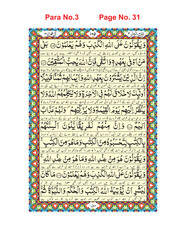 Para No.3 Page No. 31
وَيَقُوْلُوْنَ عَلَى اللّٰهِ الْكَذِبَ وَهُمْ يَعْلَمُوْنَ ۝ بَلٰى
مَنْ اَوْفٰى بِعَهْدِهٖ وَاتَّقٰى فَاِنَّ اللّٰهَ يُحِبُّ الْمُتَّقِيْنَ ۝ اِنَّ
الَّذِيْنَ يَشْتَرُوْنَ بِعَهْدِ اللّٰهِ وَاَيْمَانِهِمْ ثَمَنًا قَلِيْلًا
اُولٰٓئِكَ لَا خَلَاقَ لَهُمْ فِى الْاٰخِرَةِ وَلَا يُكَلِّمُهُمُ اللّٰهُ
وَلَا يَنْظُرُ اِلَيْهِمْ يَوْمَ الْقِيٰمَةِ وَلَا يُزَكِّيْهِمْ وَلَهُمْ عَذَابٌ
اَلِيْمٌ ۝ وَاِنَّ مِنْهُمْ لَفَرِيْقًا يَّلْوٗنَ اَلْسِنَتَهُمْ
بِالْكِتٰبِ لِتَحْسَبُوْهُ مِنَ الْكِتٰبِ وَمَا هُوَ مِنَ الْكِتٰبِ
وَيَقُوْلُوْنَ هُوَ مِنْ عِنْدِ اللّٰهِ وَمَا هُوَ مِنْ عِنْدِ اللّٰهِ
وَيَقُوْلُوْنَ عَلَى اللّٰهِ الْكَذِبَ وَهُمْ يَعْلَمُوْنَ ۝ مَا كَانَ
لِبَشَرٍ اَنْ يُّؤْتِيَهُ اللّٰهُ الْكِتٰبَ وَالْحُكْمَ وَالنُّبُوَّةَ ثُمَّ